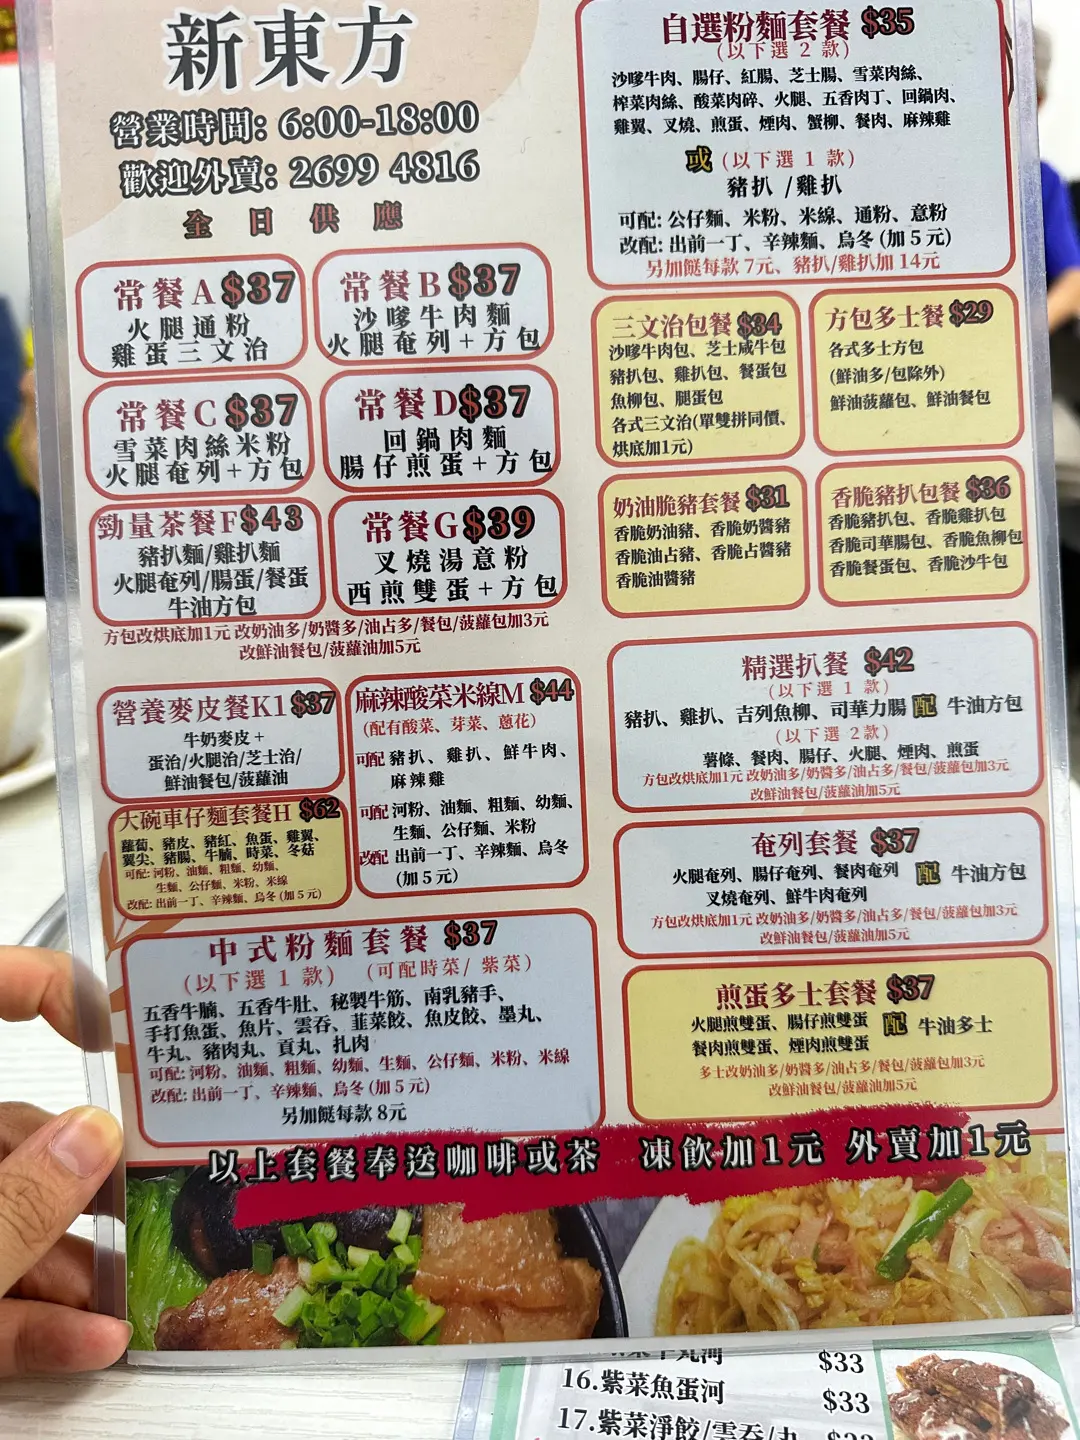 新東方
營業時間: 6:00-18:00
歡迎外賣: 2699 4816
全日供應
常餐A $37
火腿通粉
雞蛋三文治
常餐B $37
沙嗲牛肉麵
火腿奄列+方包
常餐C $37
雪菜肉絲米粉
火腿奄列+方包
常餐D $37
回鍋肉麵
腸仔煎蛋+方包
勁量茶餐F $43
豬扒麵/雞扒麵
火腿奄列/腸蛋/餐蛋
牛油方包
常餐G $39
叉燒湯意粉
西煎雙蛋+方包
方包改烘底加1元 改奶油多/奶醬多/油占多/餐包/菠蘿包加3元
改鮮油餐包/菠蘿油加5元
營養麥皮餐K1 $37
牛奶麥皮+
蛋治/火腿治/芝士治/
鮮油餐包/菠蘿油
麻辣酸菜米線M $44
(配有酸菜、芽菜、蔥花)
可配 豬扒、雞扒、鮮牛肉、
麻辣雞
可配 河粉、油麵、粗麵、幼麵、
生麵、公仔麵、米粉
改配 出前一丁、辛辣麵、烏冬
(加5元)
大碗車仔麵套餐H $62
蘿蔔、豬皮、豬紅、魚蛋、雞翼、
翼尖、豬腸、牛腩、時菜、冬菇
可配: 河粉、油麵、粗麵、幼麵、
生麵、公仔麵、米粉、米線
改配: 出前一丁、辛辣麵、烏冬(加5元)
中式粉麵套餐 $37
(以下選1款) (可配時菜/紫菜)
五香牛腩、五香牛肚、秘製牛筋、南乳豬手、
手打魚蛋、魚片、雲吞、韮菜餃、魚皮餃、墨丸、
牛丸、豬肉丸、貢丸、扎肉
可配: 河粉、油麵、粗麵、幼麵、生麵、公仔麵、米粉、米線
改配: 出前一丁、辛辣麵、烏冬(加5元)
另加餸每款8元
自選粉麵套餐 $35
(以下選2款)
沙嗲牛肉、腸仔、紅腸、芝士腸、雪菜肉絲、
榨菜肉絲、酸菜肉碎、火腿、五香肉丁、回鍋肉、
雞翼、叉燒、煎蛋、煙肉、蟹柳、餐肉、麻辣雞
或 (以下選1款)
豬扒 /雞扒
可配: 公仔麵、米粉、米線、通粉、意粉
改配: 出前一丁、辛辣麵、烏冬(加5元)
另加餸每款7元、豬扒/雞扒加14元
三文治包餐 $34
沙嗲牛肉包、芝士咸牛包
豬扒包、雞扒包、餐蛋包
魚柳包、腿蛋包
各式三文治(單雙拼同價、
烘底加1元)
方包多士餐 $29
各式多士方包
(鮮油多/包除外)
鮮油菠蘿包、鮮油餐包
奶油脆豬套餐 $31
香脆奶油豬、香脆奶醬豬
香脆油占豬、香脆占醬豬
香脆油醬豬
香脆豬扒包餐 $36
香脆豬扒包、香脆雞扒包
香脆司華腸包、香脆魚柳包
香脆餐蛋包、香脆沙牛包
精選扒餐 $42
(以下選1款)
豬扒、雞扒、吉列魚柳、司華力腸 配 牛油方包
(以下選2款)
薯條、餐肉、腸仔、火腿、煙肉、煎蛋
方包改烘底加1元 改奶油多/奶醬多/油占多/餐包/菠蘿包加3元
改鮮油餐包/菠蘿油加5元
奄列套餐 $37
火腿奄列、腸仔奄列、餐肉奄列 配 牛油方包
叉燒奄列、鮮牛肉奄列
方包改烘底加1元 改奶油多/奶醬多/油占多/餐包/菠蘿包加3元
改鮮油餐包/菠蘿油加5元
煎蛋多士套餐 $37
火腿煎雙蛋、腸仔煎雙蛋 配 牛油多士
餐肉煎雙蛋、煙肉煎雙蛋
多士改奶油多/奶醬多/油占多/餐包/菠蘿包加3元
改鮮油餐包/菠蘿油加5元
以上套餐奉送咖啡或茶 凍飲加1元 外賣加1元
$33
16.紫菜魚蛋河 $33
17.紫菜淨餃/雲吞/丸